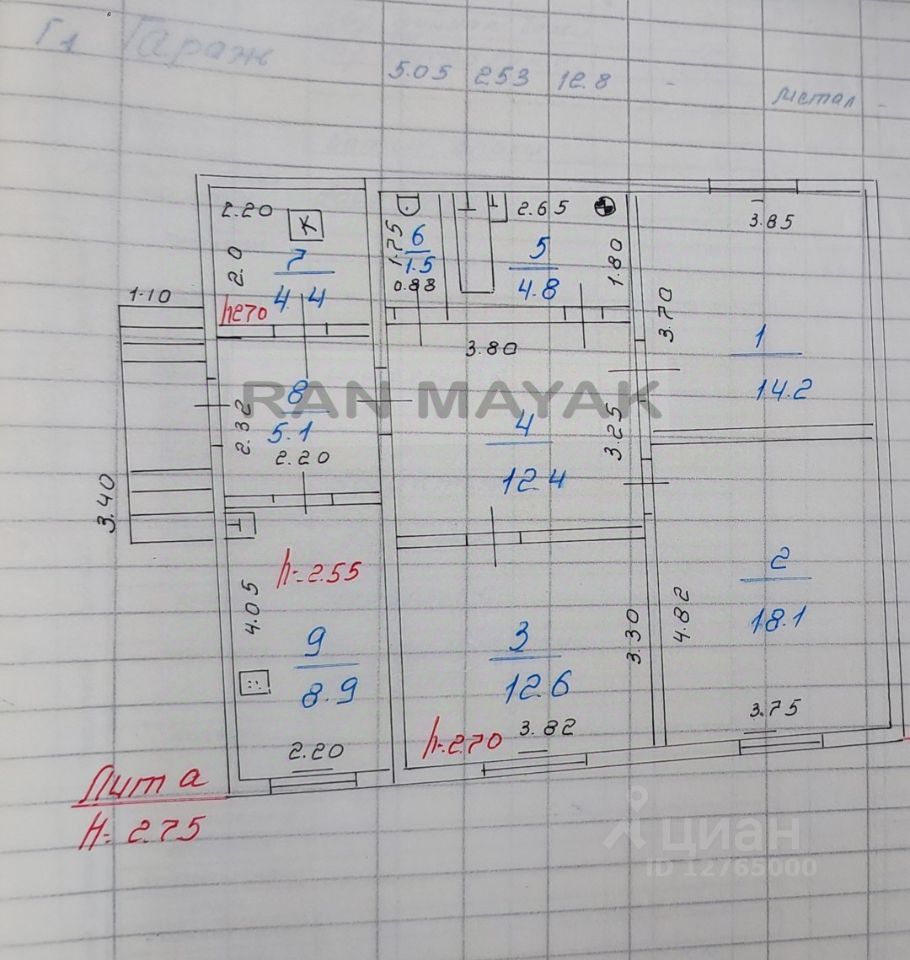 Г1 Гараж
5.05 2.53 12.8 -
метал -
2.20
К
2.0
7
4.4
h2.70
1.75
6
1.5
0.88
2.65
5
4.8
1.80
3.85
3.70
1
14.2
1.10
3.40
3.80
RAN MAYAK
8
5.1
2.32
2.20
4
12.4
3.25
h-2.55
4.05
9
8.9
2.20
3
12.6
3.30
h-2.70
3.82
2
18.1
4.82
3.75
Лит а
H-2.75
циан
ID 12765000